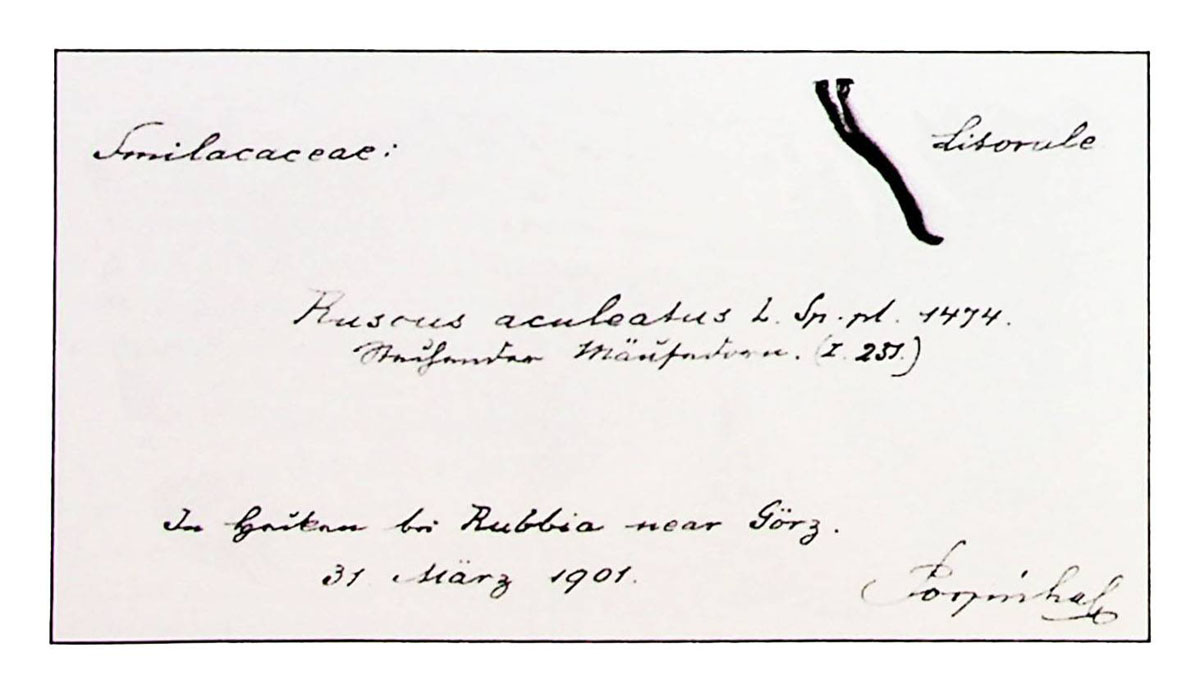 Smilacaceae: Litorale
Ruscus aculeatus L. Sp. pl. 1474.
Stechender Mäusedorn. (I. 251.)
In Hecken bei Rubbia near Görz.
31 März 1901.